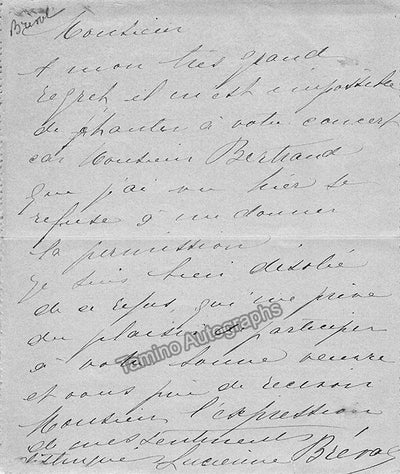 Breval
Monsieur
A mon très grand
regret, il m'est impossible
de chanter à votre concert
car Monsieur Bertrand
que j'ai vu hier se
refuse à me donner
la permission
Je suis bien désolée
de ce refus, qui me prive
du plaisir de participer
à votre bonne oeuvre
et vous prie de recevoir
Monsieur l'expression
de mes sentiments
distingués Lucienne Bréval
Tamino Autographs